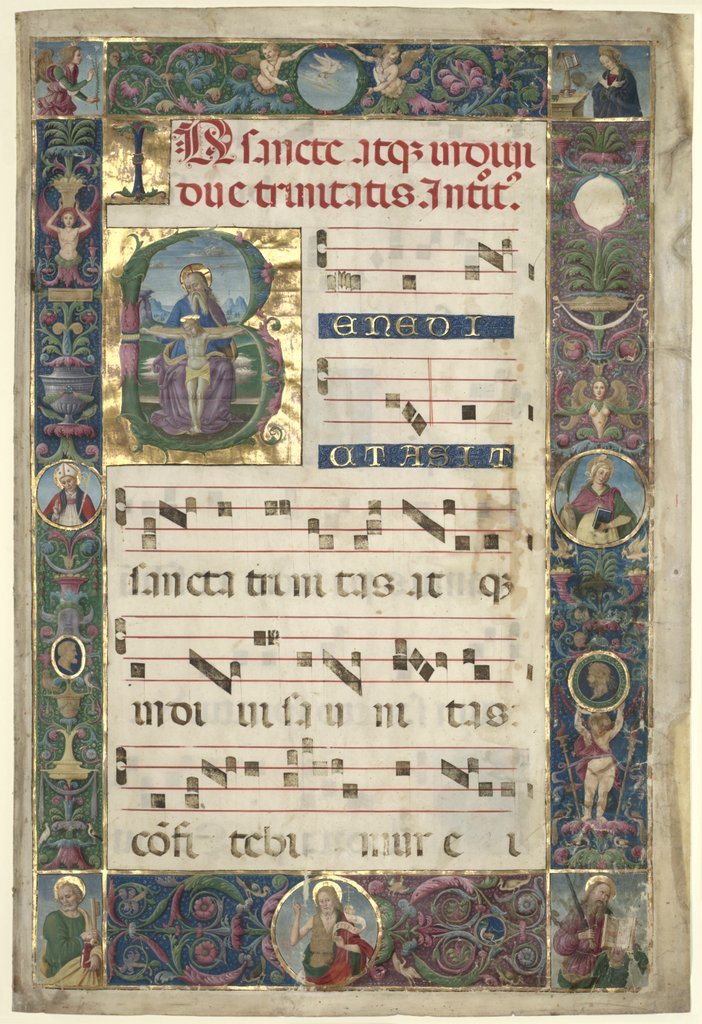 IN sancte atqȝ indiui
due trinitatis. Introit.
BENEDI
CTA SIT
sancta trini tas at qȝ
indi ui sa u ni tas:
cōfi tebi mur e i